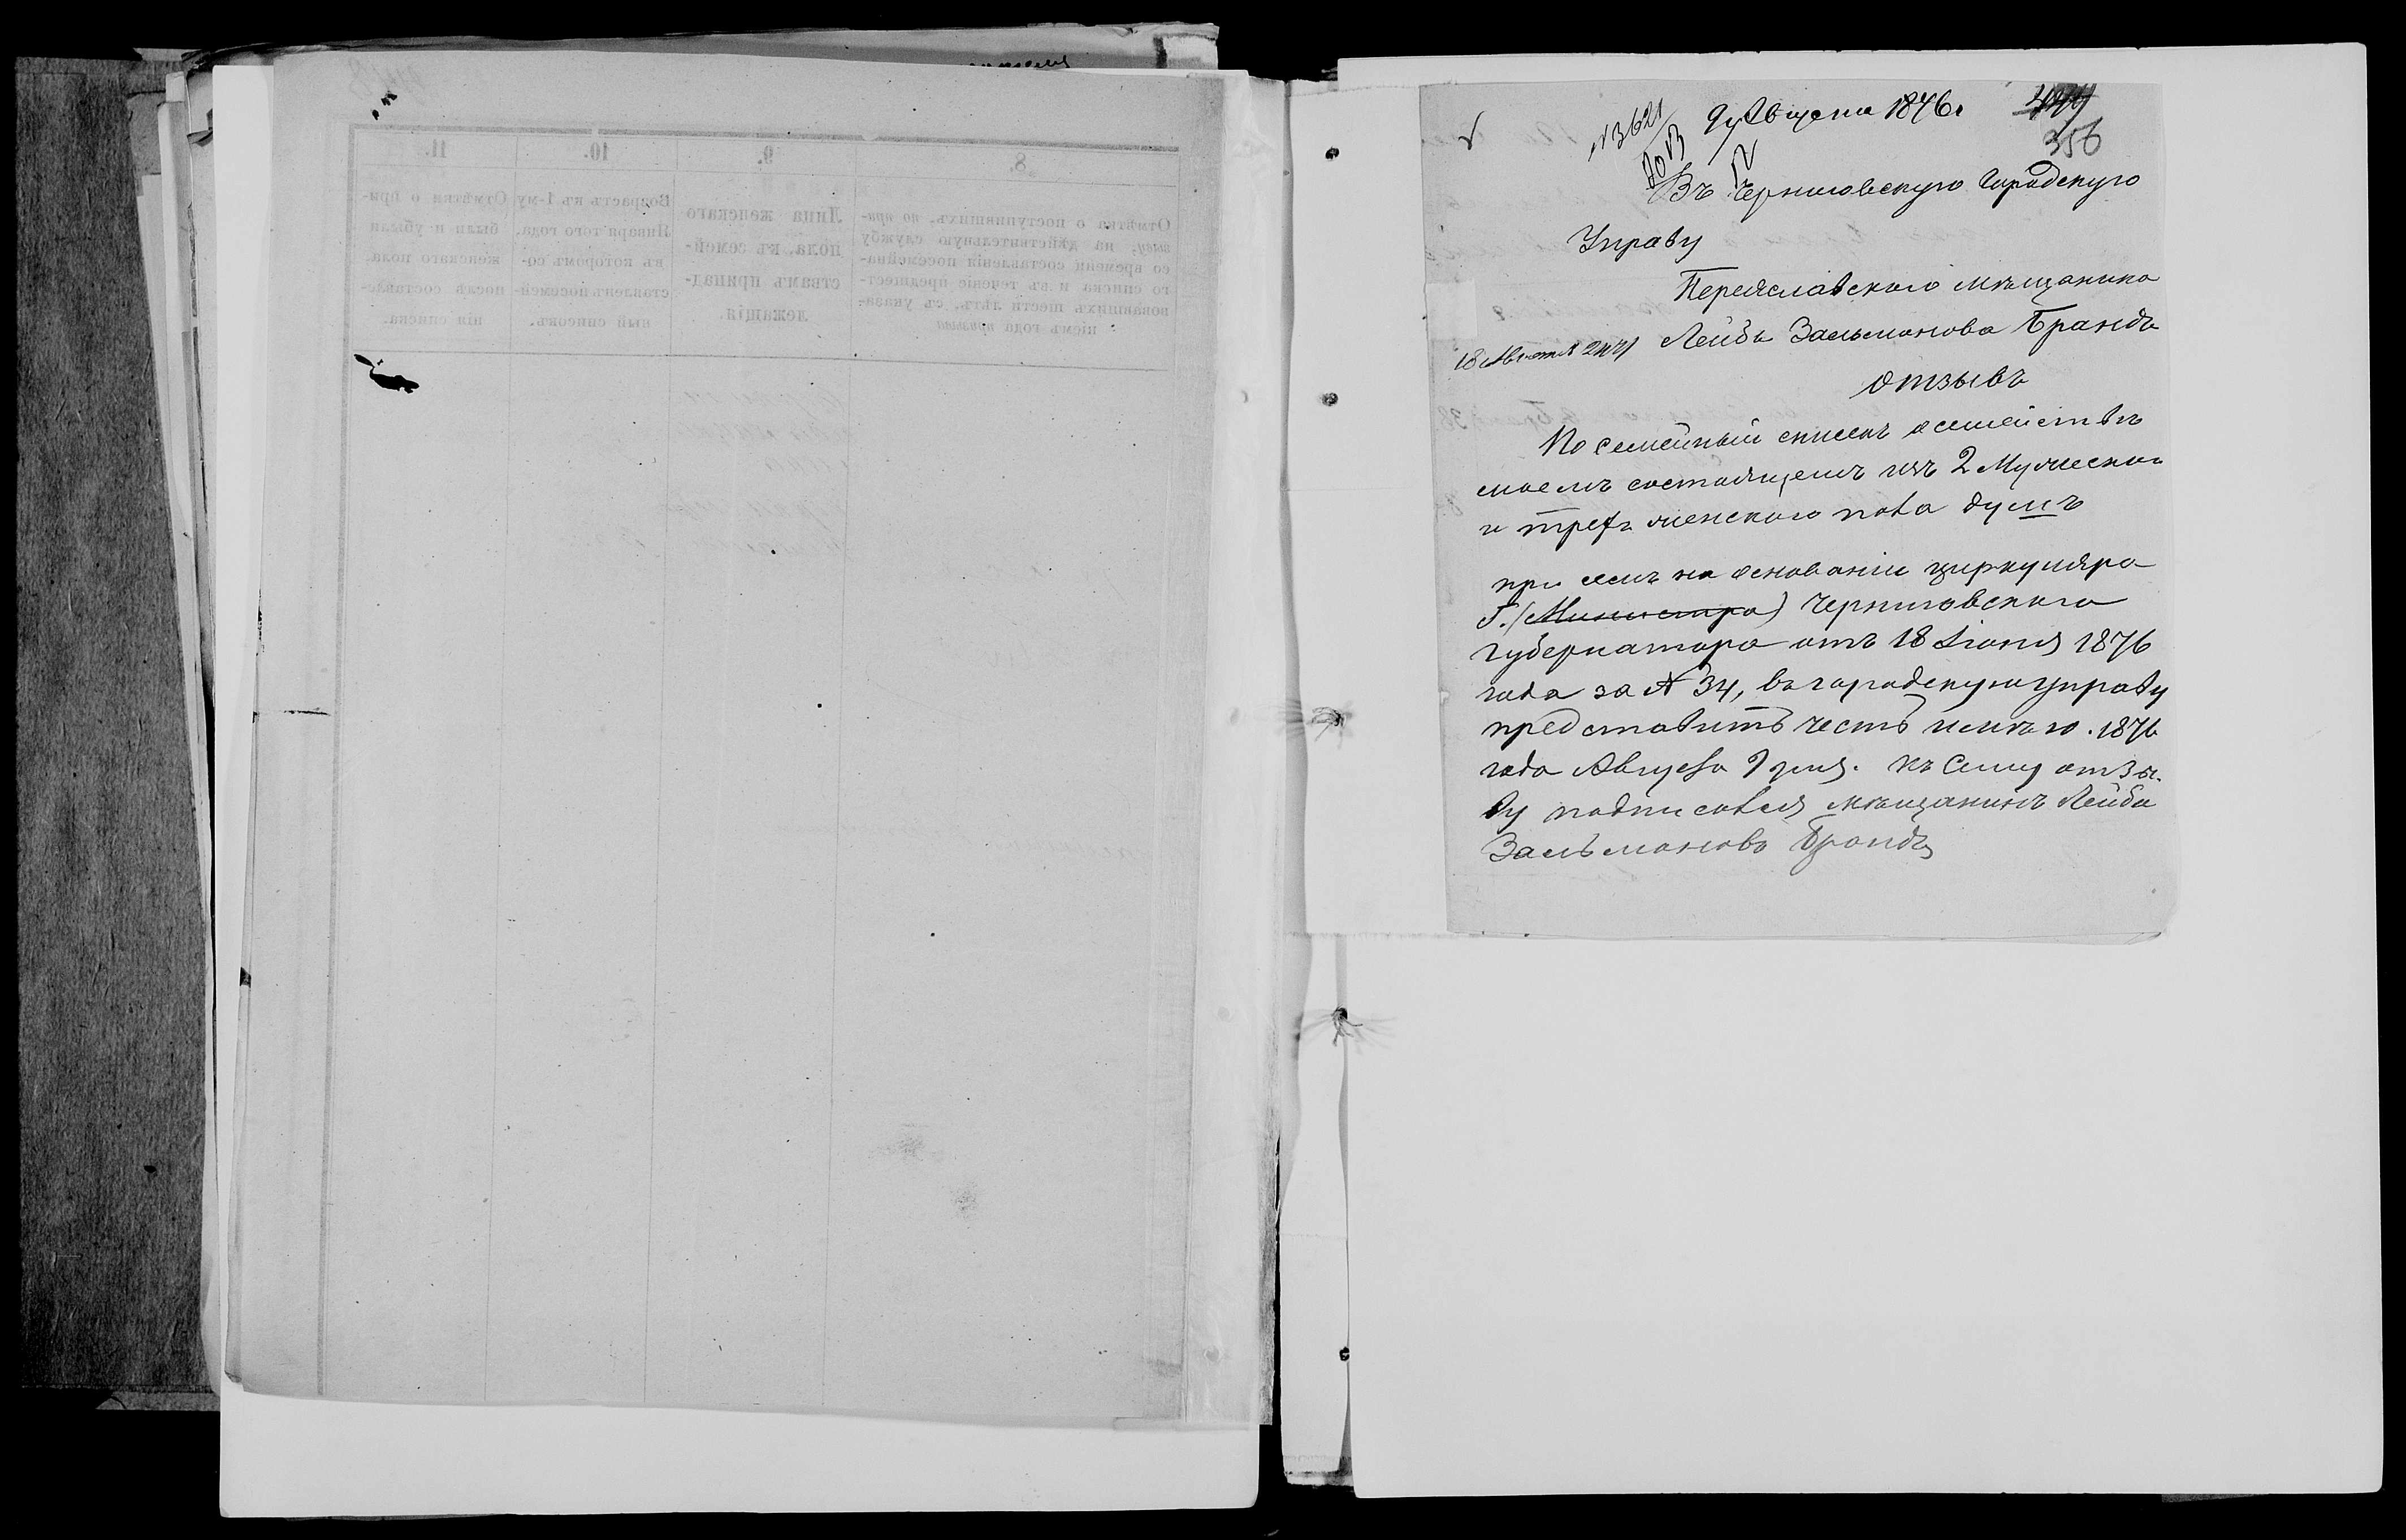 11. 10. 9. 8.
Отмѣтка о поступившихъ, по при-
зыву, на дѣйствительную службу
со времени составленія посемейна-
го списка и въ теченіе предшест-
вовавшихъ шести лѣтъ, съ указа-
ніемъ года призыва
Лица женскаго
пола, къ семей-
ствамъ принад-
лежащія.
Возрастъ къ 1-му
Января того года,
въ которомъ со-
ставленъ посемей-
ный списокъ.
Отмѣтки о при-
были и убыли
женскаго пола
послѣ составле-
нія списка.
№3621
9 Августа 1876 г
356
Въ Черниговскую Городскую
Управу
Переяславскаго мѣщанина
Лейбы Зальманова Брандъ
18 Августа
отзывъ
Посемейный списокъ о семействѣ
моемъ состоящемъ изъ 2 Мужеска
и трехъ женского пола душъ
при семъ на основаніи циркуляра
Г. (Министра) Черниговскаго
Губернатора отъ 18 Іюня 1876
года за № 34, въ городскую управу
представить честь имѣю. 1876
года Августа 9 дня. Къ сему отзы-
ву подписался мѣщанинъ Лейба
Зальмановъ Брандъ